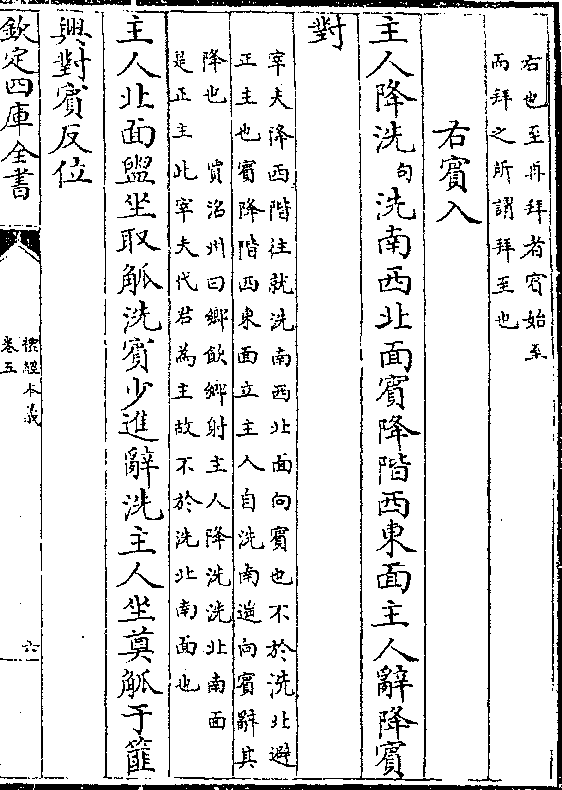 右也至再拜者賓始至
而拜之所謂拜至也
右賓入
主人降洗句洗南西北面賓降階西東面主人辭降賓
對
宰夫降西階往就洗南西北面向賓也不於洗北避
正主也賓降階西東面立主人自洗南遥向賓辭其
降也　賈洺州曰鄉飲鄉射主人降洗洗北南面
是正主此宰夫代君為主故不於洗北南面也
主人北面盥坐取觚洗賓少進辭洗主人坐奠觚于篚
興對賓反位
欽定四庫全書
禮經本義
卷五
六